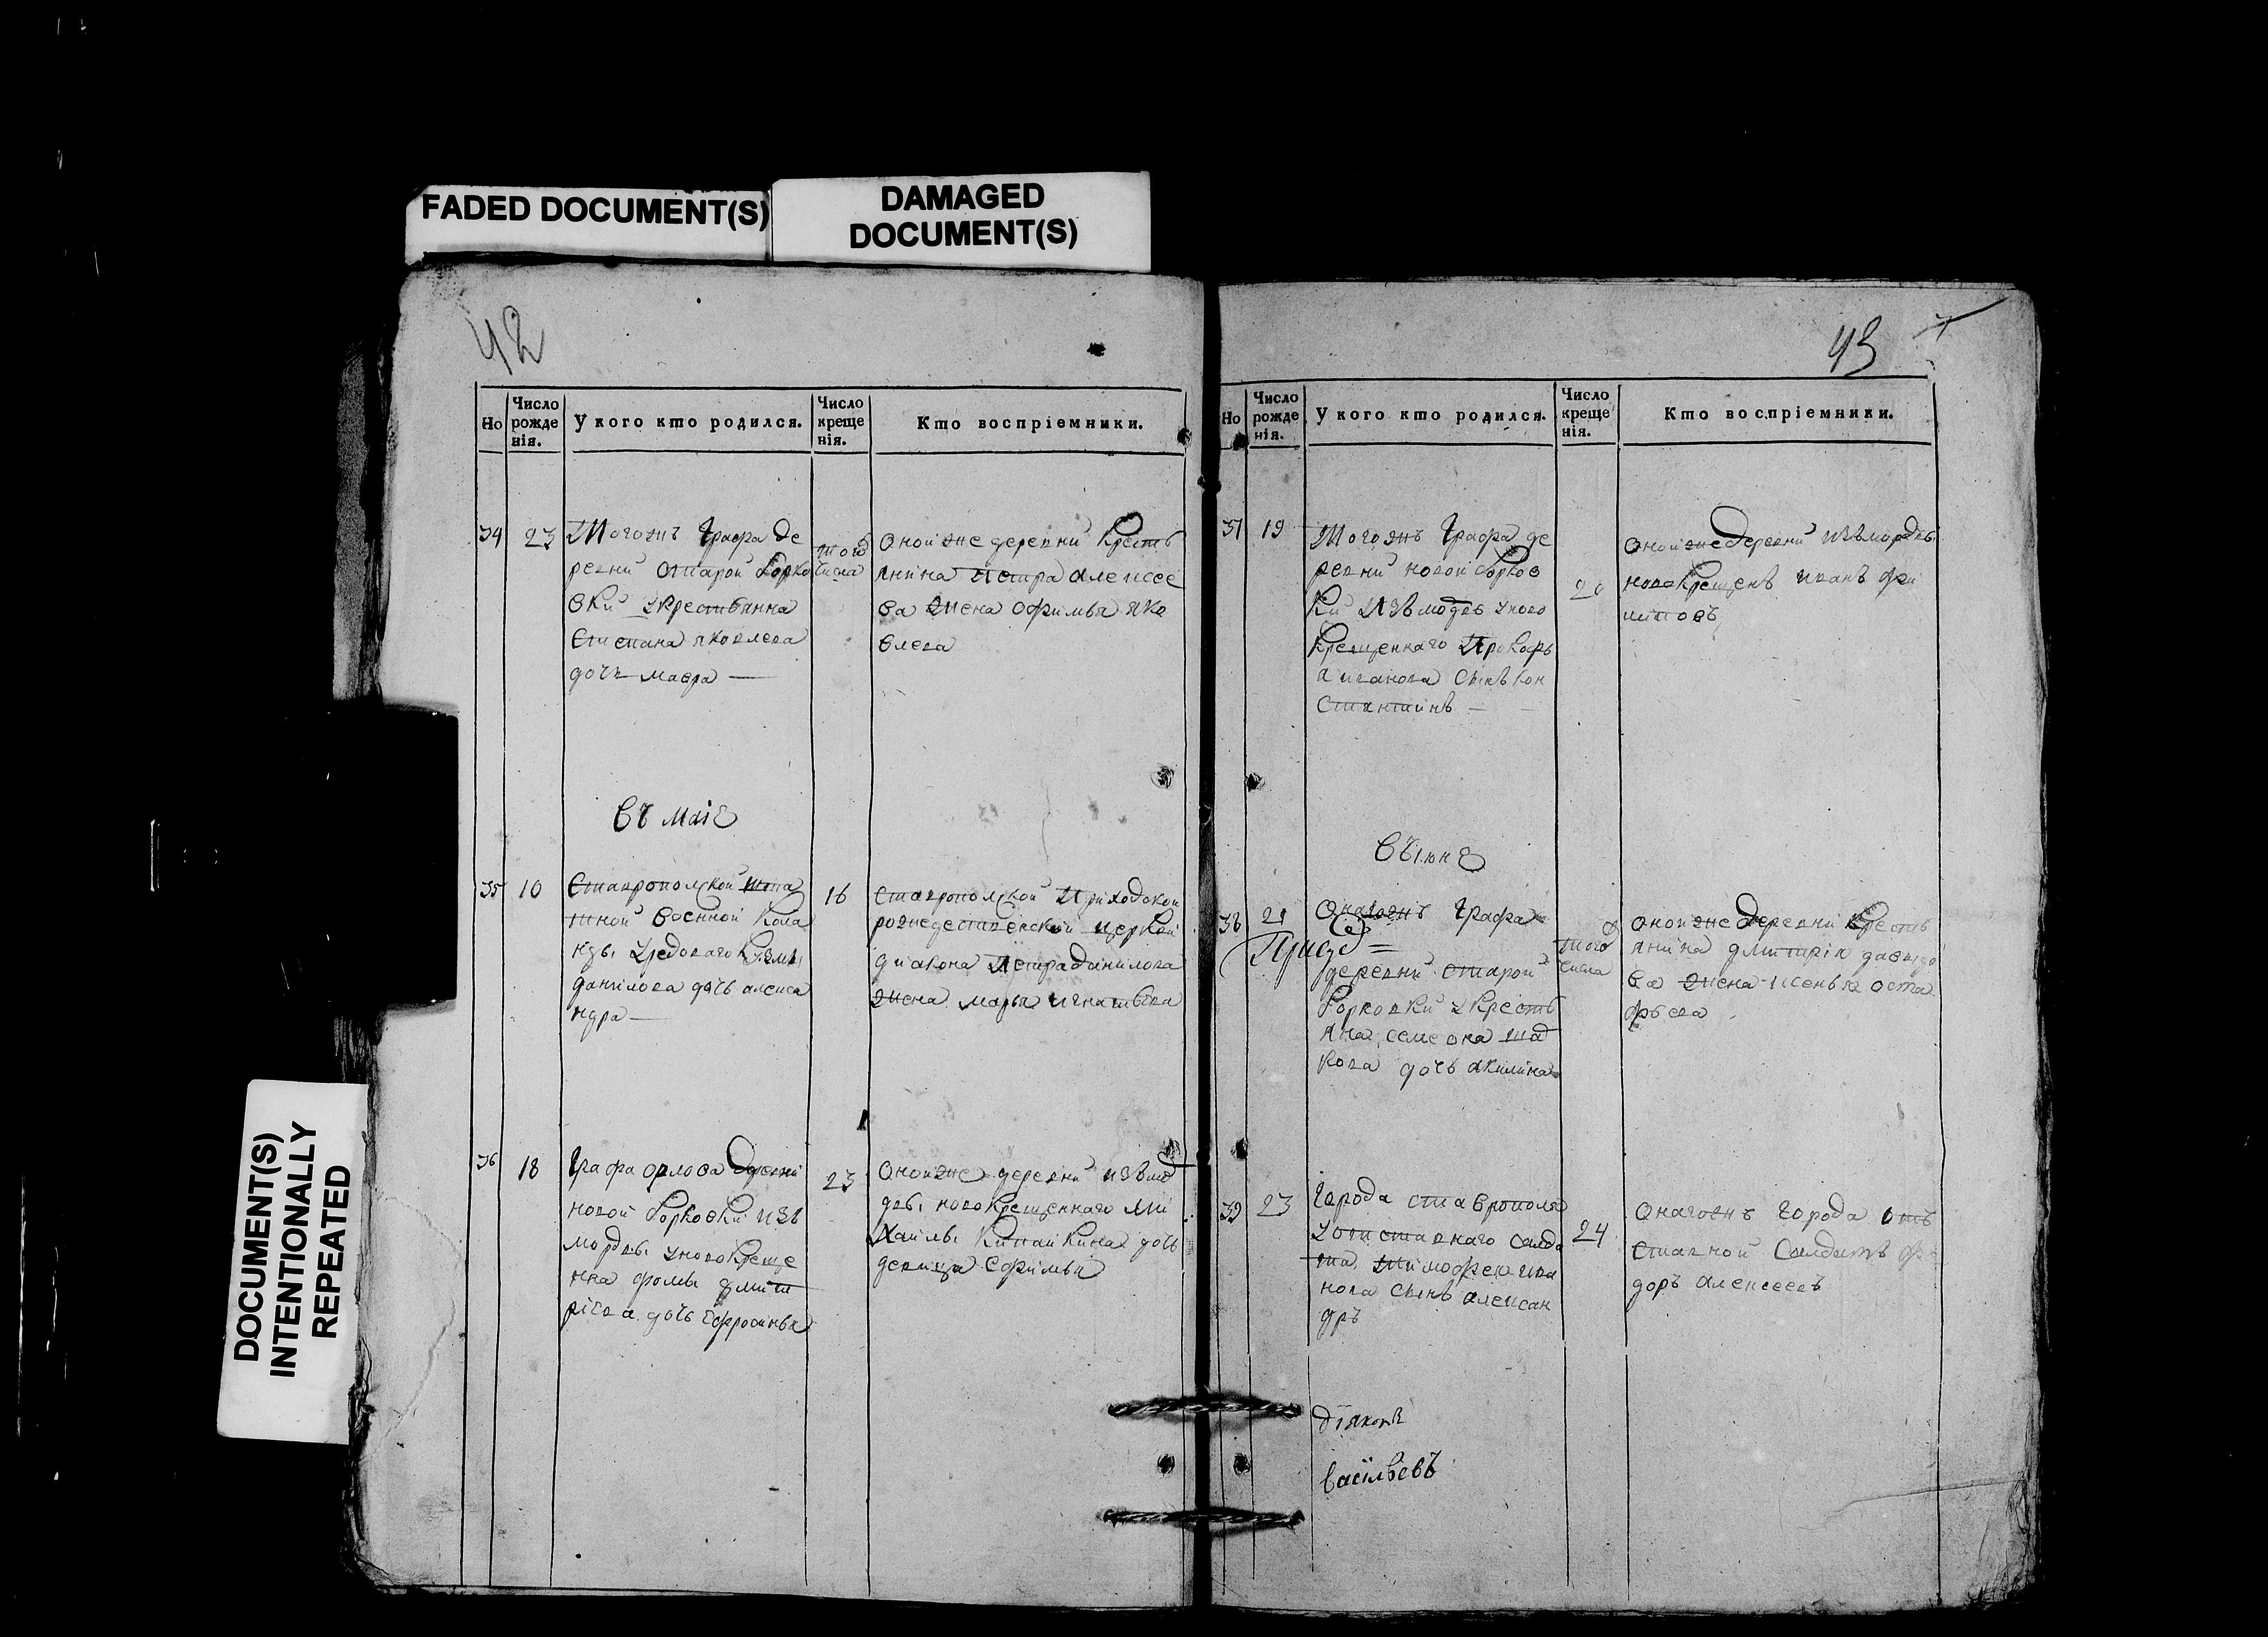 FADED DOCUMENT(S)
DAMAGED
DOCUMENT(S)
DOCUMENT(S)
INTENTIONALLY
REPEATED
42
Но
Число
рожде
нія.
У кого кто родился.
Число
креще
нія.
Кто воспріемники.
34
23
Тогожъ Графа де
ревни старой Борко
вки укрестьянина
Степана яковлева
дочь мавра —
того
числа
оной же деревни кресть
янина Петра алексее
ва жена офимья яко
влева
въ маіе
35
10
Ставропольской шта
тной военной кома
нды урядоваго
данилова дочь алекса
ндра —
16
Ставропольской Приходской
рождественской церкви
диакона Петра данилова
жена марья игнатьева
36
18
Графа орлова деревни
новой Борковки изъ
мордвы уновокреще
нна фомы дмит
ріева дочь ефросинья
23
оной же деревни изъ мо
рдвы новокрещеннаго ми
хайлы дочь
девица Софимья
43
Но
Число
рожде
нія.
У кого кто родился.
Число
креще
нія.
Кто воспріемники.
37
19
Тогожъ Графа де
ревни новой Борков
ки Изъ модвы уново
крещеннаго Прокофь
я иванова сынъ кон
стантинъ —
20
оной же деревни изъ мордвы
новокрещенъ иванъ
въ іюне
38
21
Онагожъ Графа
деревни старой
Борковки укресть
янина семеона
дочь акилина
того
числа
оной же деревни кресть
янина дмитрія давыдо
ва жена ксенья оста
фьева
39
23
Города ставрополя
уотставнаго салда
та Тимофея ива
нова сынъ алексан
дръ
24
Онагожъ города от
ставной салдатъ фе
доръ алексеевъ
діяконъ
васильевъ